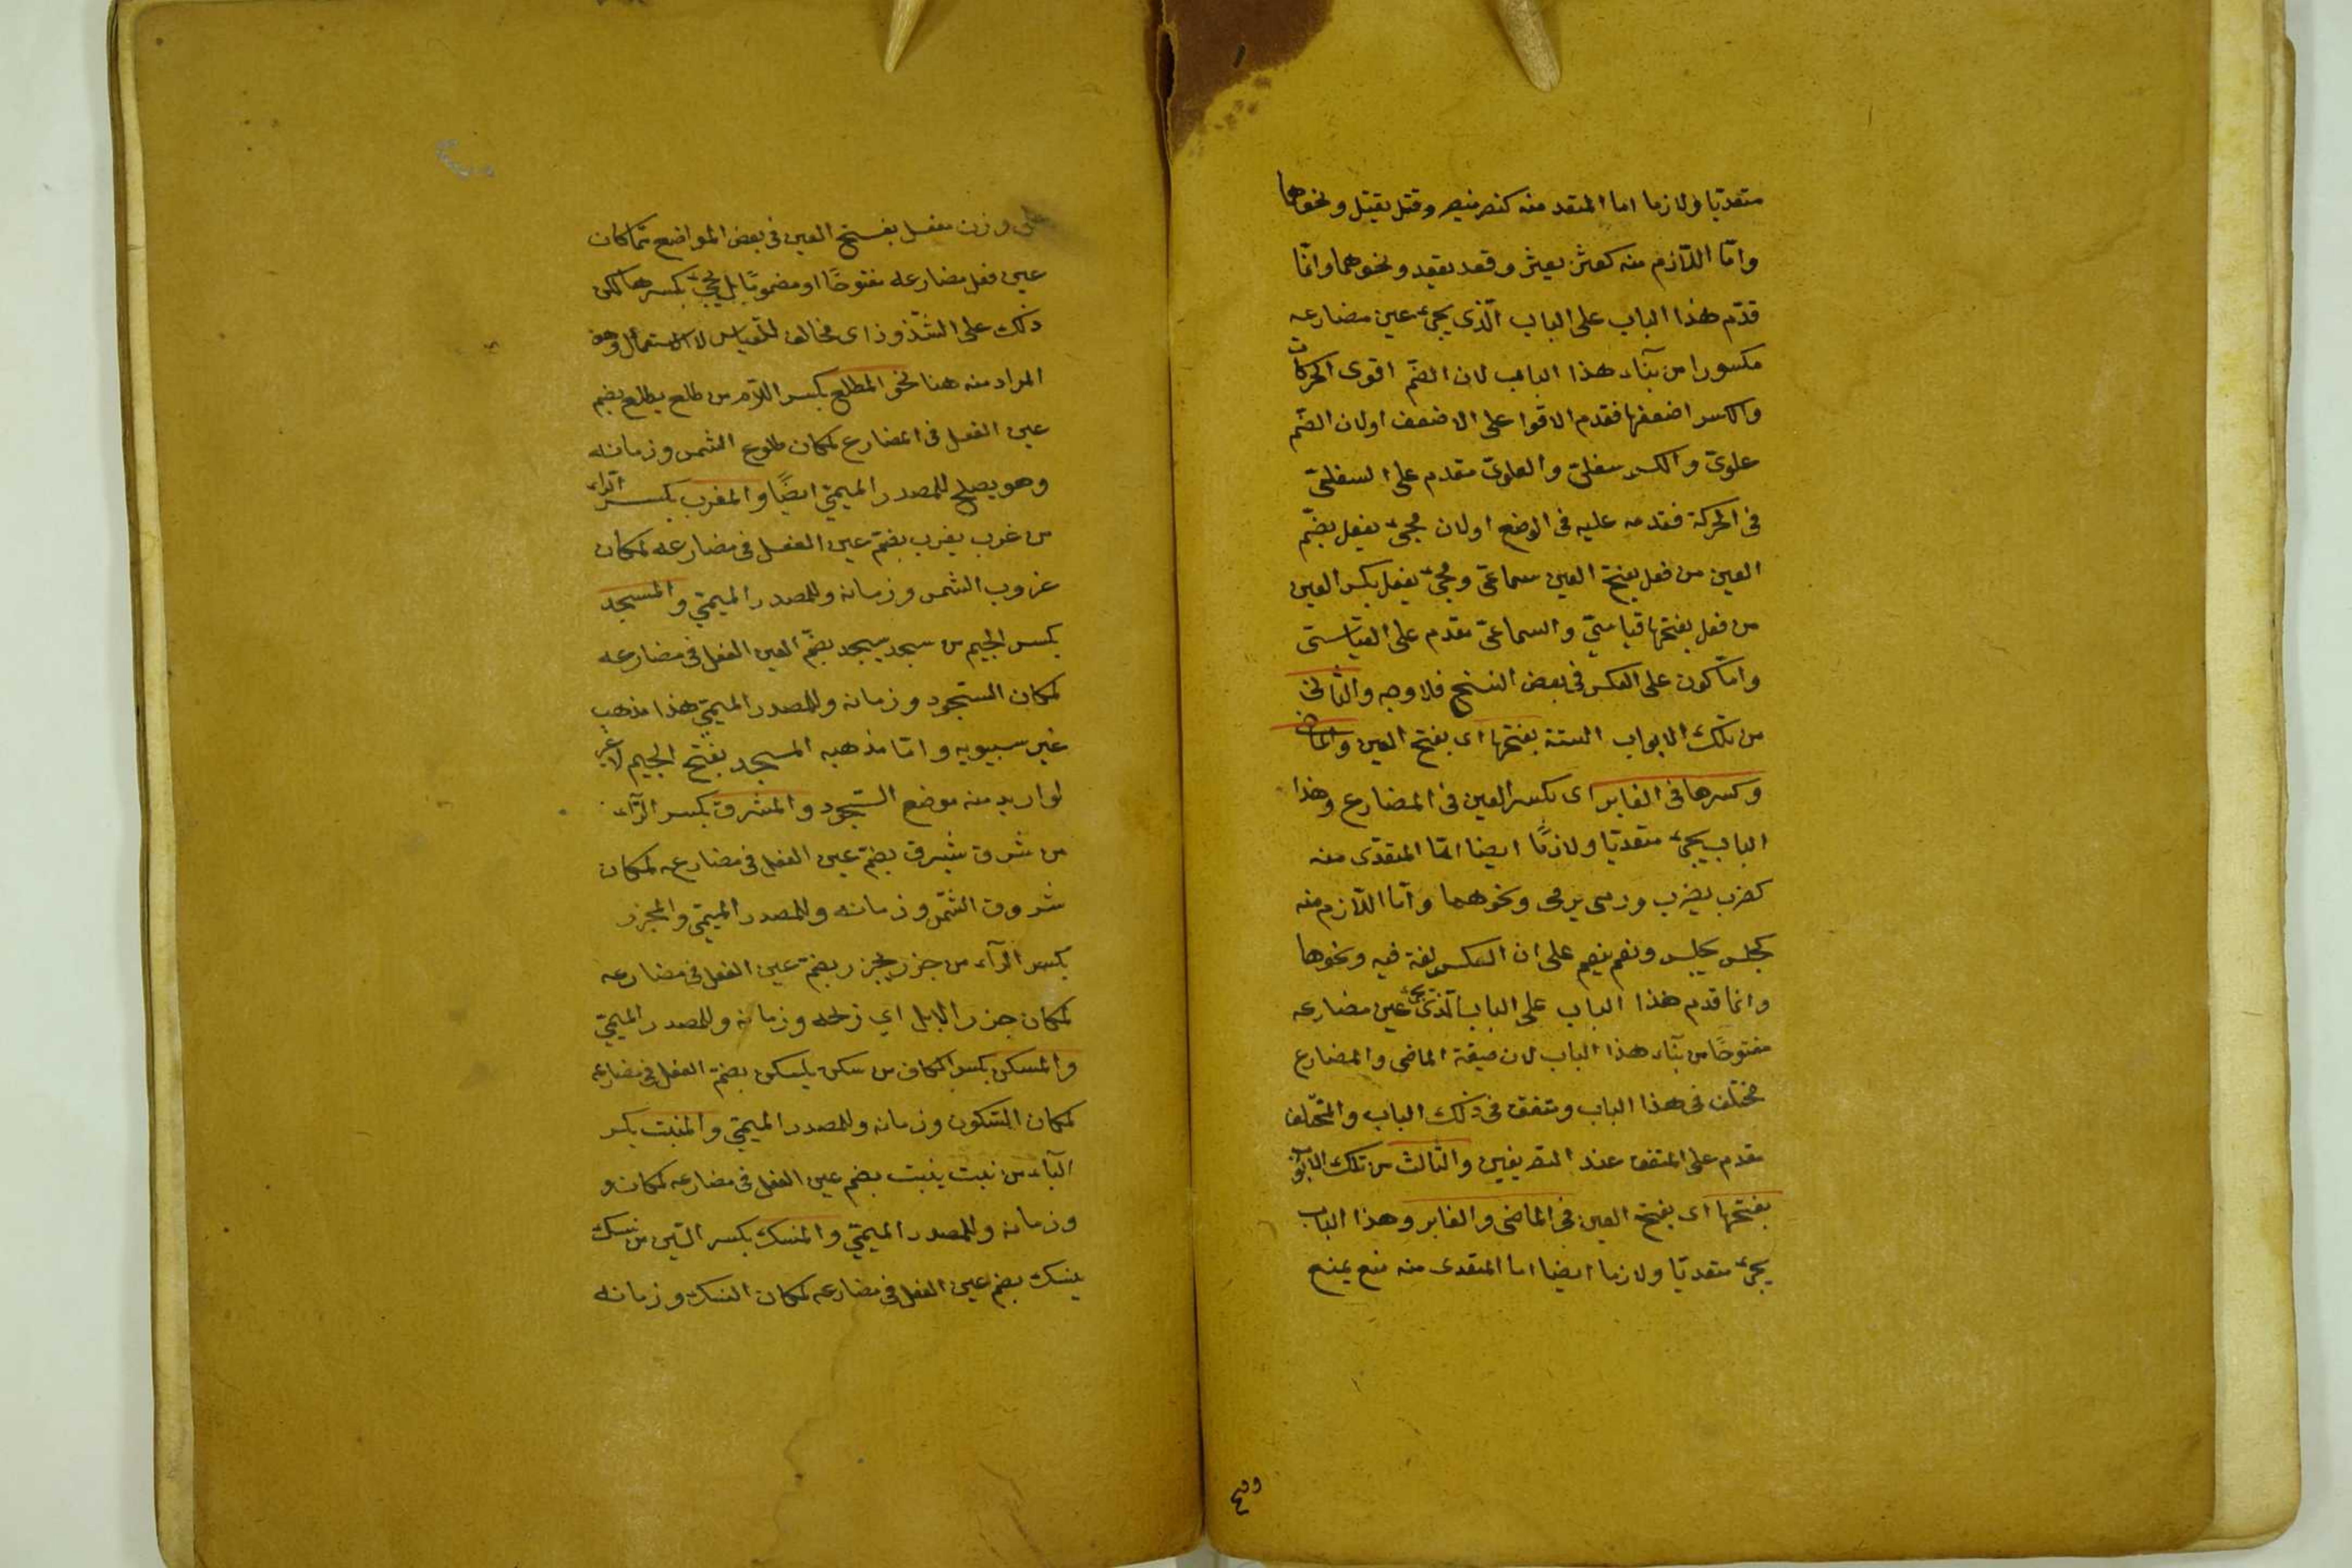 متعديا ولازما اما المتعد منه كنصر ينصر وقتل يقتل ونحوهما
وامّا اللّازم منه كعثر يعثر وقعد يقعد ونحوهما وانّما
قدّم هذا الباب على الباب الّذى يجئ عين مضارعه
مكسورا من بنآء هذا الباب لان الضّم اقوى الحركات
والكسر اضعفها فقدم الاقوا على الاضعف اولان الضّم
علوىّ والكسر سفلىّ والعلوىّ مقدم على السفلىّ
فى الحركة فقدمه عليه فى الوضع اولان مجئ يفعل بضّم
العين من فعل بفتح العين سماعىّ ومجئ يفعل بكسر العين
من فعل بفتحها قياسىّ والسماعىّ مقدم على القيّاسىّ
وامّا كون على العكس فى بعض النسخ فلا وجه والثّانى
من تلك الابواب الستة بفتحها اى بفتح العين والماض
وكسرها فى الغابر اى بكسر العين فى المضارع وهذا
الباب يجئ متعديّا ولازمًا ايضا امّا المتعدّى منه
كضرب يضرب ورمى يرمى ونحوهما وامّا اللّازم منه
كجلس يجلس ونعم ينعم على ان العكس لغة فيه ونحوها
وانما قدم هذا الباب على الباب الّذى يجئ عين مضارعه
مفتوحًا من بنآء هذا الباب لان صيغة الماضى والمضارع
مختلف فى هذا الباب ومتفق فى ذلك الباب والمختلف
مقدم على المتفق عند التصريفين والثّالث من تلك الابواب
بفتحها اى بفتح العين فى الماضى والغابر وهذا الباب
يجئ متعديّا ولازما ايضا اما المتعدى منه منع يمنع
على وزن مفعل بفتح العين فى بعض المواضع ممّا كان
عين فعل مضارعه مفتوحًا او مضمومًا بل يجئ بكسرها لكن
ذلك على الشّذوذ اى مخالف للقياس لا الاستعمال وهو
المراد منه هنا نحو المطلع بكسر اللام من طلع يطلع بضم
عين الفعل فى المضارع لمكان طلوع الشمس وزمانه
وهو يصلح للمصدر الميمىّ ايضًا والمغرب بكسر الرّاء
من غرب يغرب بضمّ عين الفعل فى مضارعه لمكان
غروب الشمس وزمانه وللمصدر الميمىّ والمسجد
بكسر الجيم من سجد يسجد بضّم العين الفعل فى مضارعه
لمكان السّجود وزمانه وللمصدر الميمىّ هذا مذهب
غير سيبويه وامّا مذهبه المسجد بفتح الجيم لا غير
لو اريد منه موضع السّجود والمشرق بكسر الرّآء
من شرق يشرق بضمّ عين الفعل فى مضارعه لمكان
شروق الشّمس وزمانه وللمصدر الميمىّ والمجزر
بكسر الرّآء من جزر يجزر بضمّ عين الفعل فى مضارعه
لمكان جزر الابل اى نحله وزمانه وللمصدر الميمىّ
والمسكن بكسر الكاف من سكن يسكن بضمّ الفعل فى مضارعه
لمكان السّكون وزمانه وللمصدر الميمىّ والمنبت بكسر
البآء من نبت ينبت بضم عين الفعل فى مضارعه لمكان و
وزمانه وللمصدر الميمىّ والمنسك بكسر السّين من نسك
ينسك بضم عين الفعل فى مضارعه لمكان النسك وزمانه